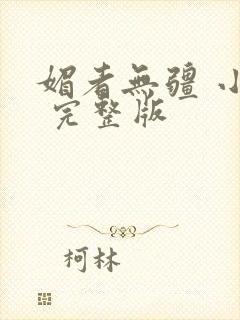 媚者無疆 小
完整版
柯林